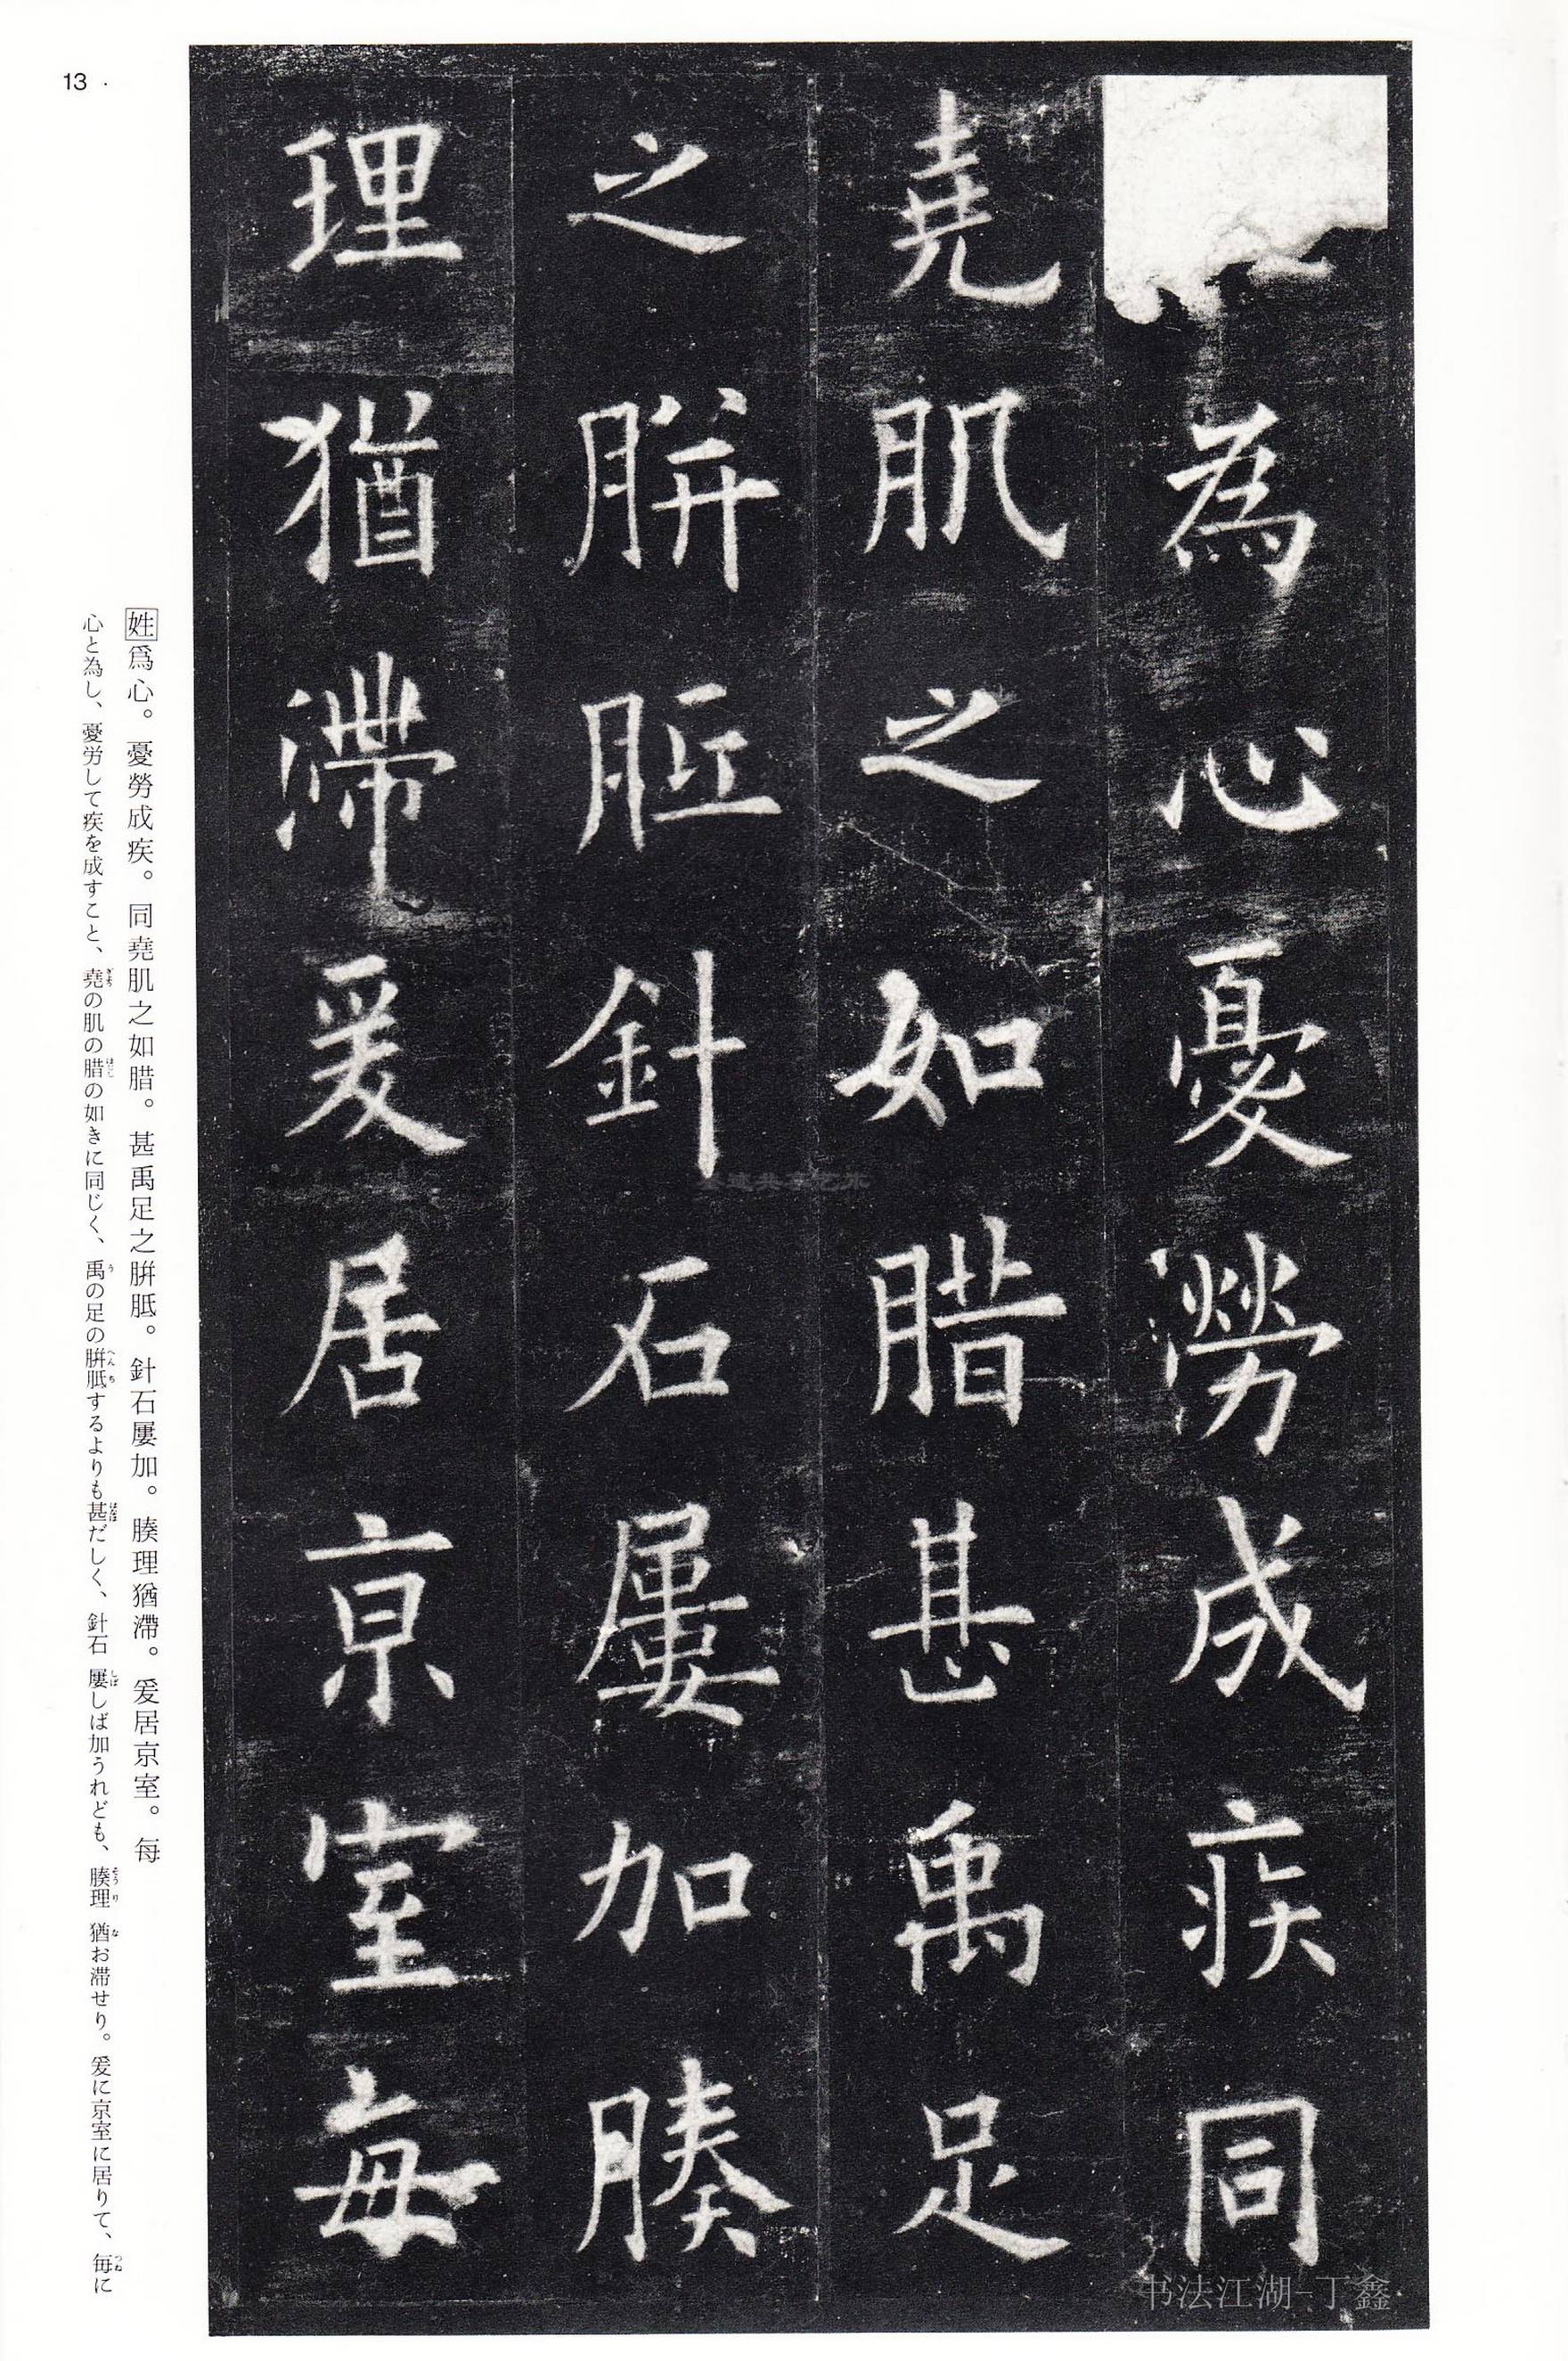 為心憂勞成疾同
堯肌之如腊甚禹足
之胼胝針石屢加腠
理猶滯爰居京室每
姓爲心。憂勞成疾。同堯肌之如腊。甚禹足之胼胝。針石屢加。腠理猶滯。爰居京室。每
心と為し、憂労して疾を成すこと、堯の肌の腊の如きに同じく、禹の足の胼胝するよりも甚だしく、針石屢しば加うれども、腠理猶お滞せり。爰に京室に居りて、毎に
13
书法江湖-丁鑫